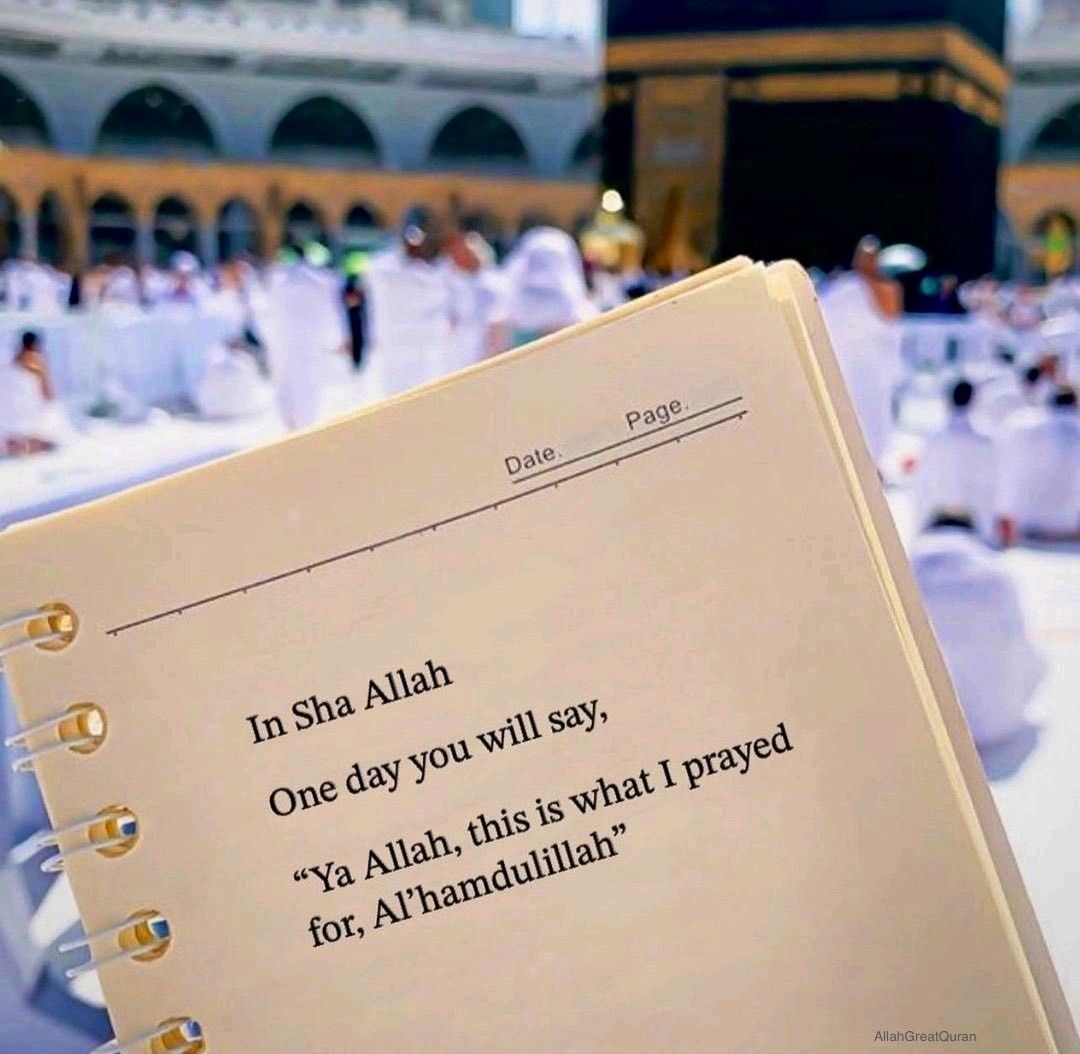 Date. Page.
In Sha Allah
One day you will say,
“Ya Allah, this is what I prayed
for, Al’hamdulillah”
AllahGreatQuran